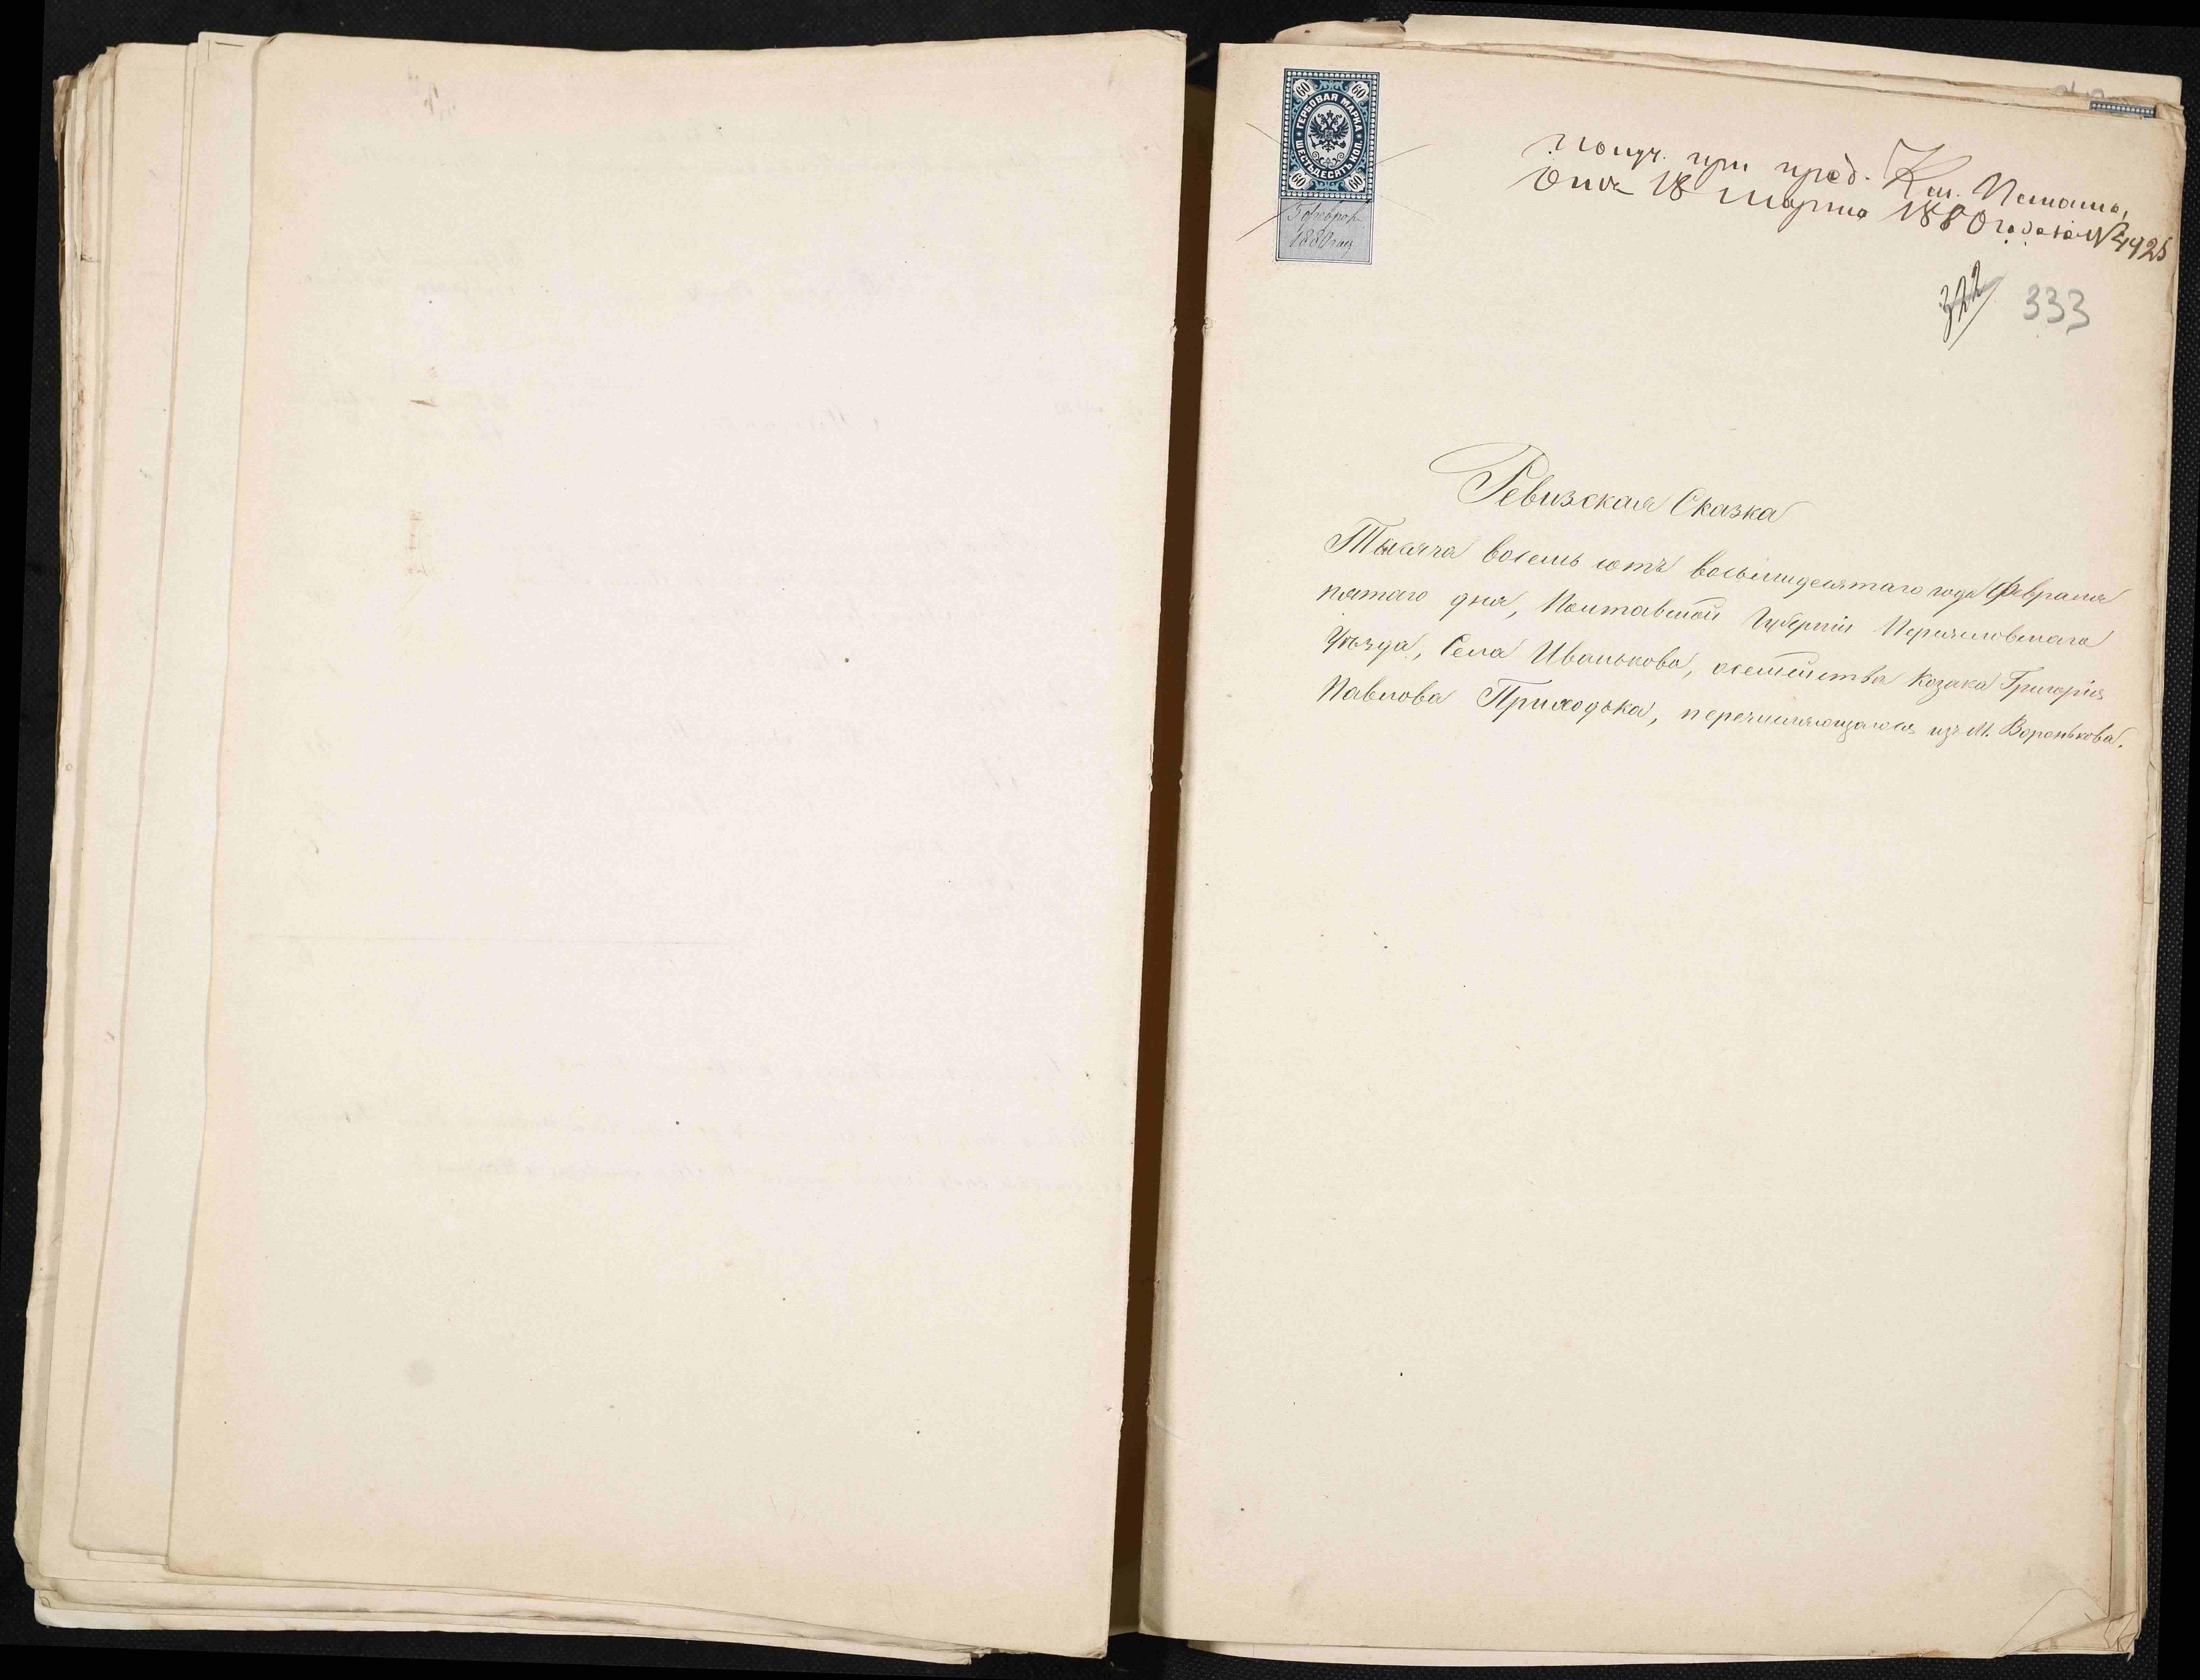 60 60
ГЕРБОВАЯ МАРКА
ШЕСТЬДЕСЯТЪ КОП.
60 60
5 феврал
1880 года
Получ. при пред. Каз. Палаты,
отъ 18 марта 1880 года за № 4925
322 333
Ревизская Сказка
Тысяча восемь сотъ восьмидесятаго года Февраля
пятаго дня, Полтавской Губерніи Переяславскаго
Уѣзда, Села Иванькова, о семействѣ Козака Григорія
Павлова Приходька, перечисляющагося изъ М. Воронькова.